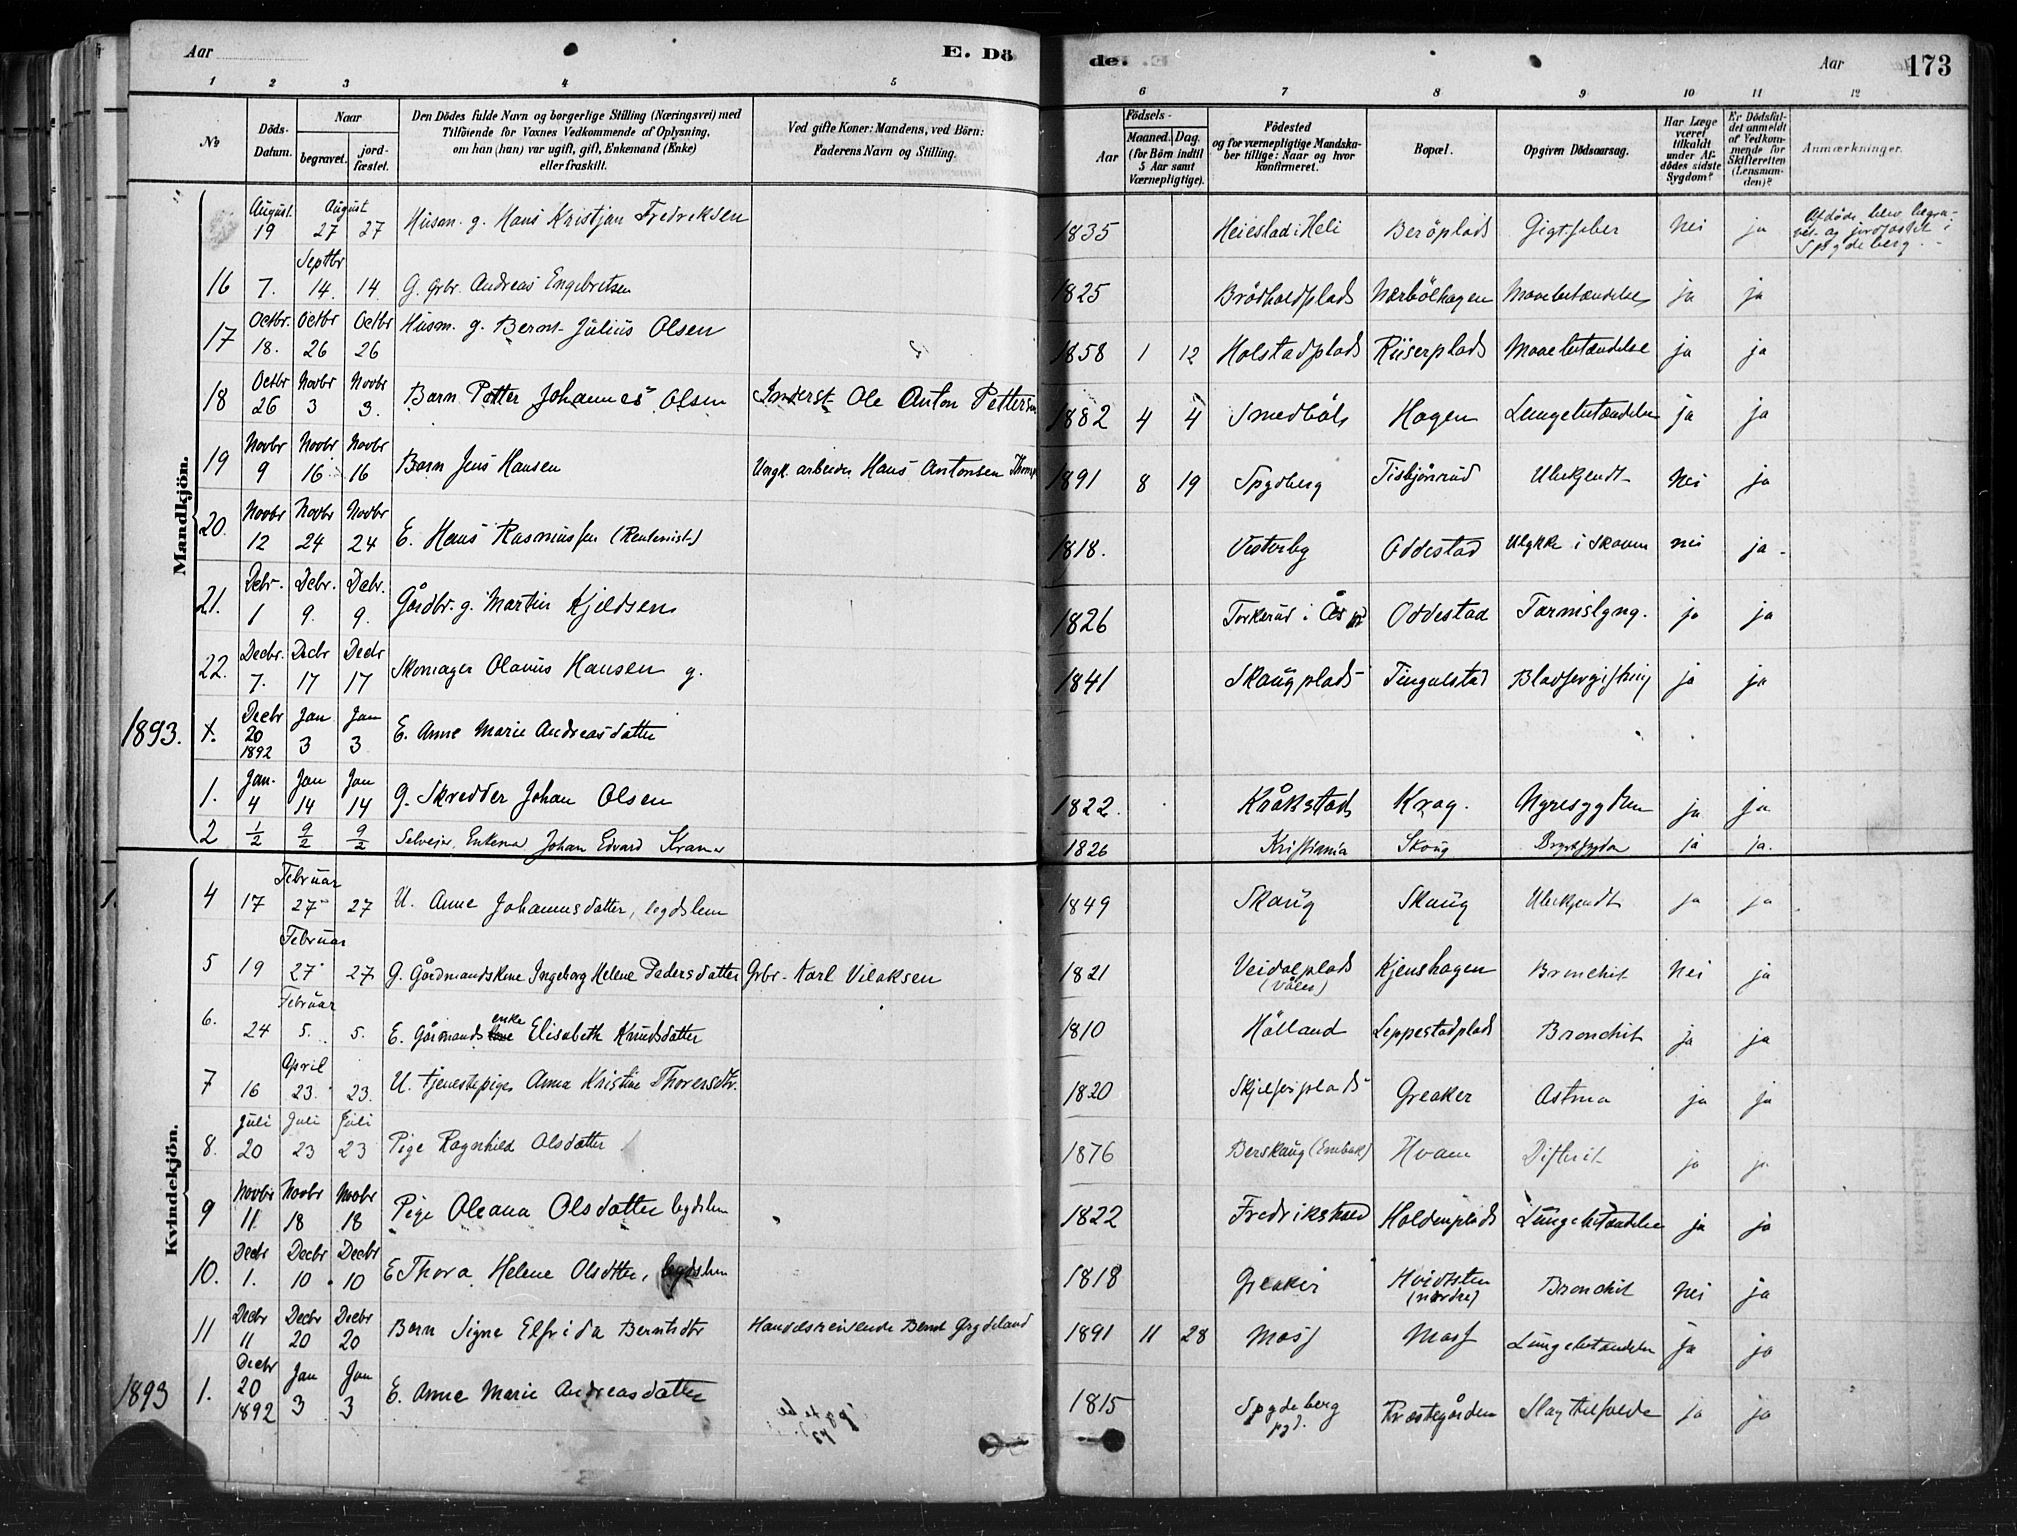 Aar E. Dö de. Aar 173
1 2 3 4 5 6 7 8 9 10 11 12
No Döds-Datum. Naar begravet. jord-fæstet. Den Dödes fulde Navn og borgerlige Stilling (Næringsvei) med Tilföiende for Voxnes Vedkommende af Oplysning, om han (hun) var ugift, gift, Enkemand (Enke) eller fraskilt. Ved gifte Koner: Mandens, ved Börn: Faderens Navn og Stilling. Födsels- Aar Maaned. Dag. (for Börn indtil 5 Aar samt Værnepligtige). Födested og for værnepligtige Mandska-ber tillige: Naar og hvor konfirmeret. Bopæl. Opgiven Dödsaarsag. Har Læge været tilkaldt under Af-dödes sidste Sygdom? Er Dödsfal-det anmeldt af Vedkom-mende for Skifteretten (Lensman-den)? Anmærkninger.
Mandkjön.
August. 19 August 27 27 Husm. g. Hans Kristjan Fredriksen 1835 Heiestad i Heli Beröplads Gigtfeber Nei ja Afdöde blev begra-vet og jordfæstet i Spydeberg.
16 7. Septbr 14. 14. G. Grbr. Andreas Engebretsen 1825 Brödholdplads Nærbölhagen Mavebetændelse ja ja
17 Octbr. 18. Octbr 26 Octbr 26 Husm. g. Bernt Julius Olsen 1858 1 12 Holstadplads Riiserplads Mavebetændelse ja ja
18 Octbr 26 Novbr 3 Novbr 3. Barn Petter Johannes Olsen Inderst Ole Anton Pettersen 1882 4 4 Smedböls Hagen Lungebetændelse ja ja
19 Novbr 9 Novbr 16 Novbr 16 Barn Jens Hansen arbeider Hans Antonsen 1891 8 19 Spydberg Tisbjönrud Ubekjendt Nei ja
20. Novbr 12 Novbr 24 Novbr 24 E. Hans Rasmussen (Rentenist) 1818. Vesterby Oddestad Ulykke i Skoven nei ja
21. Debr. 1 Debr. 9. Debr. 9. Gårdbr. g. Martin Kjeldsen 1826 Torkerud i Ås Oddestad Tarmslyng. ja ja
22. Decbr. 7. Decbr 17 Decbr 17 Skomager Olavus Hansen g. 1841 Skaugplads Tingulstad Blodforgiftning ja ja
1893. x. Decbr 20 1892 Jan 3 Jan 3 E. Anne Marie Andreasdatter
1. Jan. 4 Jan 14 Jan 14 G. Skredder Johan Olsen 1822. Kråkstad Krog. Nyresygdom ja ja
2 1/2 9/2 9/2 Selveier Enkem Johan Edvard Kramer 1826 Kristiania Skoug Brystsygdom ja ja.
Kvindekjön.
4 17 Februar 27 27 U. Anne Johannesdatter, legdslem 1849 Skaug Skaug Ubekjendt ja ja
5 19 Februar 27 27 G. Gårdmandskone Ingeborg Helene Pedersdatter Grbr. Karl Vilaksen 1821 Veidalplads (Våler) Kjenshagen Bronchit Nei ja
6. 24 Februar 5. 5. E. Gårmandsenke Elisabeth Knudsdatter 1810 Hölland Leppestadplads Bronchit ja ja
7 16 April 23. 23. U. tjenestepige Anna Kristine Thorersdtr. 1820 Greaker Astma ja ja
8. Juli 20 Juli 23 Juli 23 Pige Ragnhild Olsdatter 1876 Berskaug (Enebak) Hvam Difterit ja ja
9 Novbr 11 Novbr 18 Novbr 18 Pige Oleana Olsdatter legdslem 1822 Fredrikshald Holdenplads Lungebetændelse ja ja
10. Decbr 1. Decbr 10 Decbr 10 E Thora Helene Olsdtter, legdslem 1818 Greaker Hvidsten (nordre) Bronchit Nei ja
11 Decbr 11 Decbr 20 Decbr 20 Barn Signe Elfrida Berntsdtr Handelsreisende Bernt Grydeland 1891 11 28 Moss Moss Lungebetændelse ja ja
1893 1. Decbr 20 1892 Jan 3 Jan 3 E. Anne Marie Andreasdatter 1815 Spydeberg pgd. Præstegården Slagtilfælde ja ja